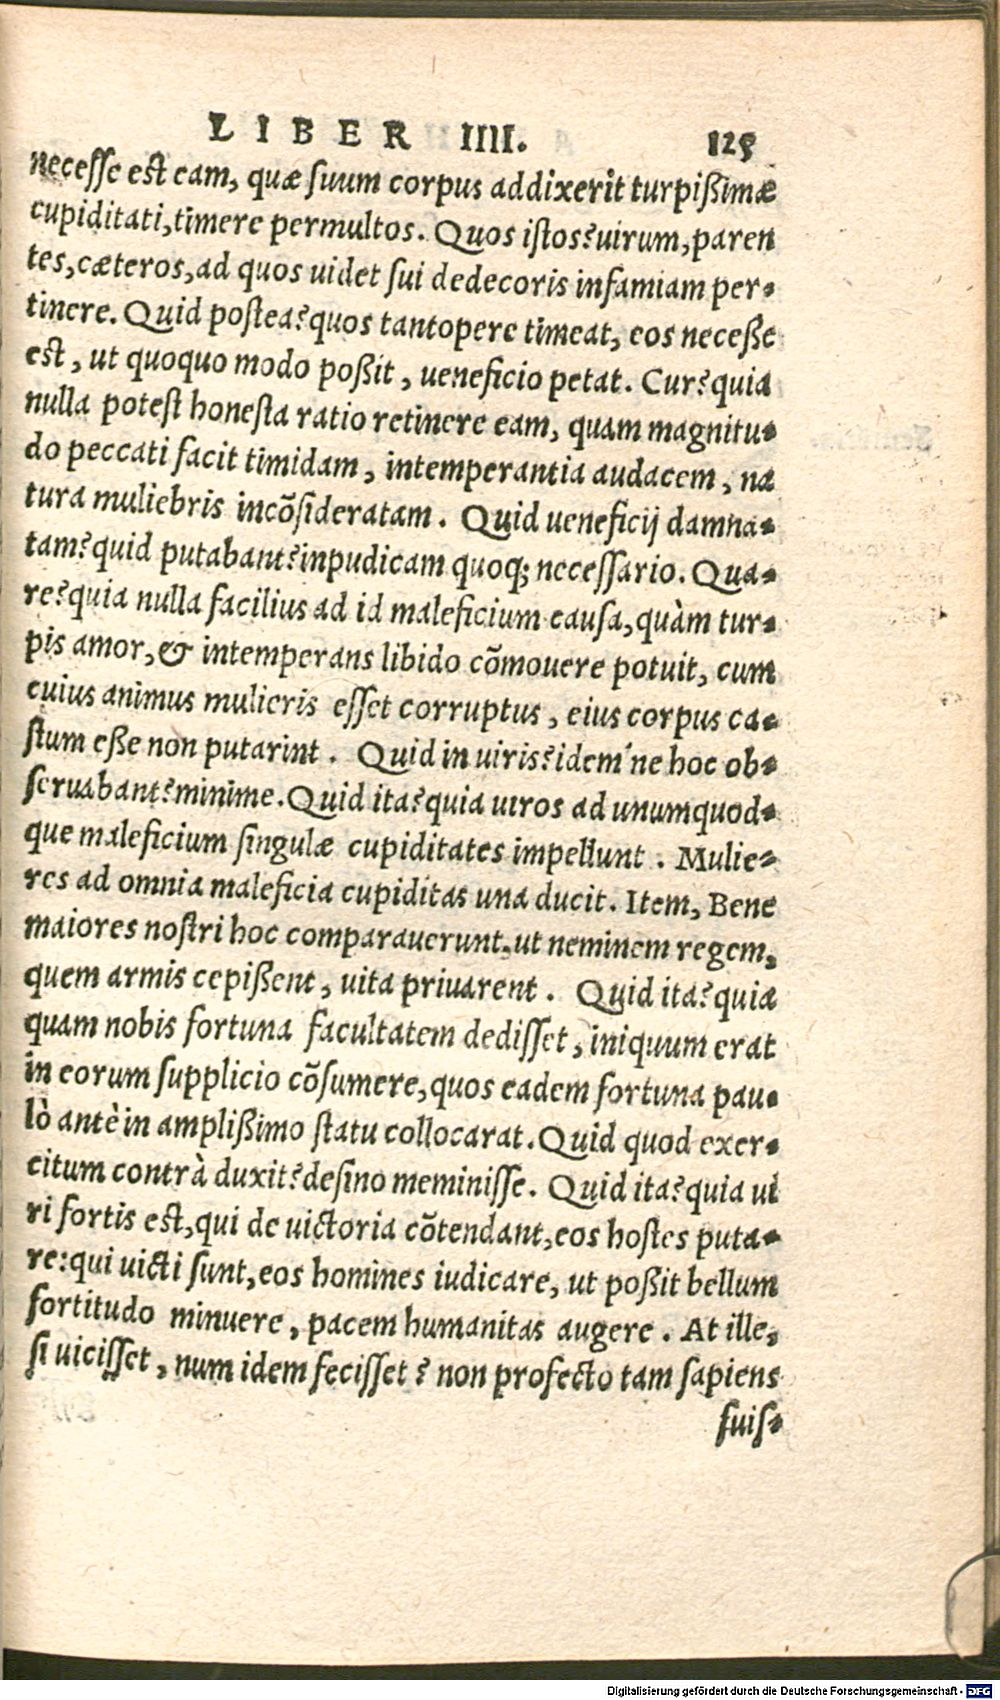 LIBER IIII. 125
necesse est eam, quæ suum corpus addixerit turpißimæ
cupiditati, timere permultos. Quos istos? uirum, paren
tes, cæteros, ad quos uidet sui dedecoris infamiam per-
tinere. Quid postea? quos tantopere timeat, eos neceße
est, ut quoquo modo poßit, ueneficio petat. Cur? quia
nulla potest honesta ratio retinere eam, quam magnitu-
do peccati facit timidam, intemperantia audacem, na
tura muliebris incõsideratam. Quid ueneficij damna-
tam? quid putabant? inpudicam quoq; necessario. Qua-
re? quia nulla facilius ad id maleficium causa, quàm tur-
pis amor, & intemperans libido cõmouere potuit, cum
cuius animus mulieris esset corruptus, eius corpus ca-
stum eße non putarint. Quid in uiris? idem'ne hoc ob-
seruabant? minime. Quid ita? quia uiros ad unumquod-
que maleficium singulæ cupiditates impellunt. Mulie-
res ad omnia maleficia cupiditas una ducit. Item, Bene
maiores nostri hoc comparauerunt, ut neminem regem,
quem armis cepißent, uita priuarent. Quid ita? quia
quam nobis fortuna facultatem dedisset, iniquum erat
in eorum supplicio cõsumere, quos eadem fortuna pau-
lò antè in amplißimo statu collocarat. Quid quod exer-
citum contrà duxit? desino meminisse. Quid ita? quia ui
ri fortis est, qui de uictoria cõtendant, eos hostes puta-
re: qui uicti sunt, eos homines iudicare, ut poßit bellum
fortitudo minuere, pacem humanitas augere. At ille,
si uicisset, num idem fecisset? non profecto tam sapiens
fuis-
Digitalisierung gefördert durch die Deutsche Forschungsgemeinschaft - DFG